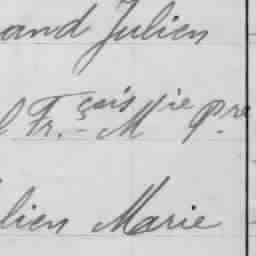 and Julien
l Fr.çois Mie Pre
lien Marie